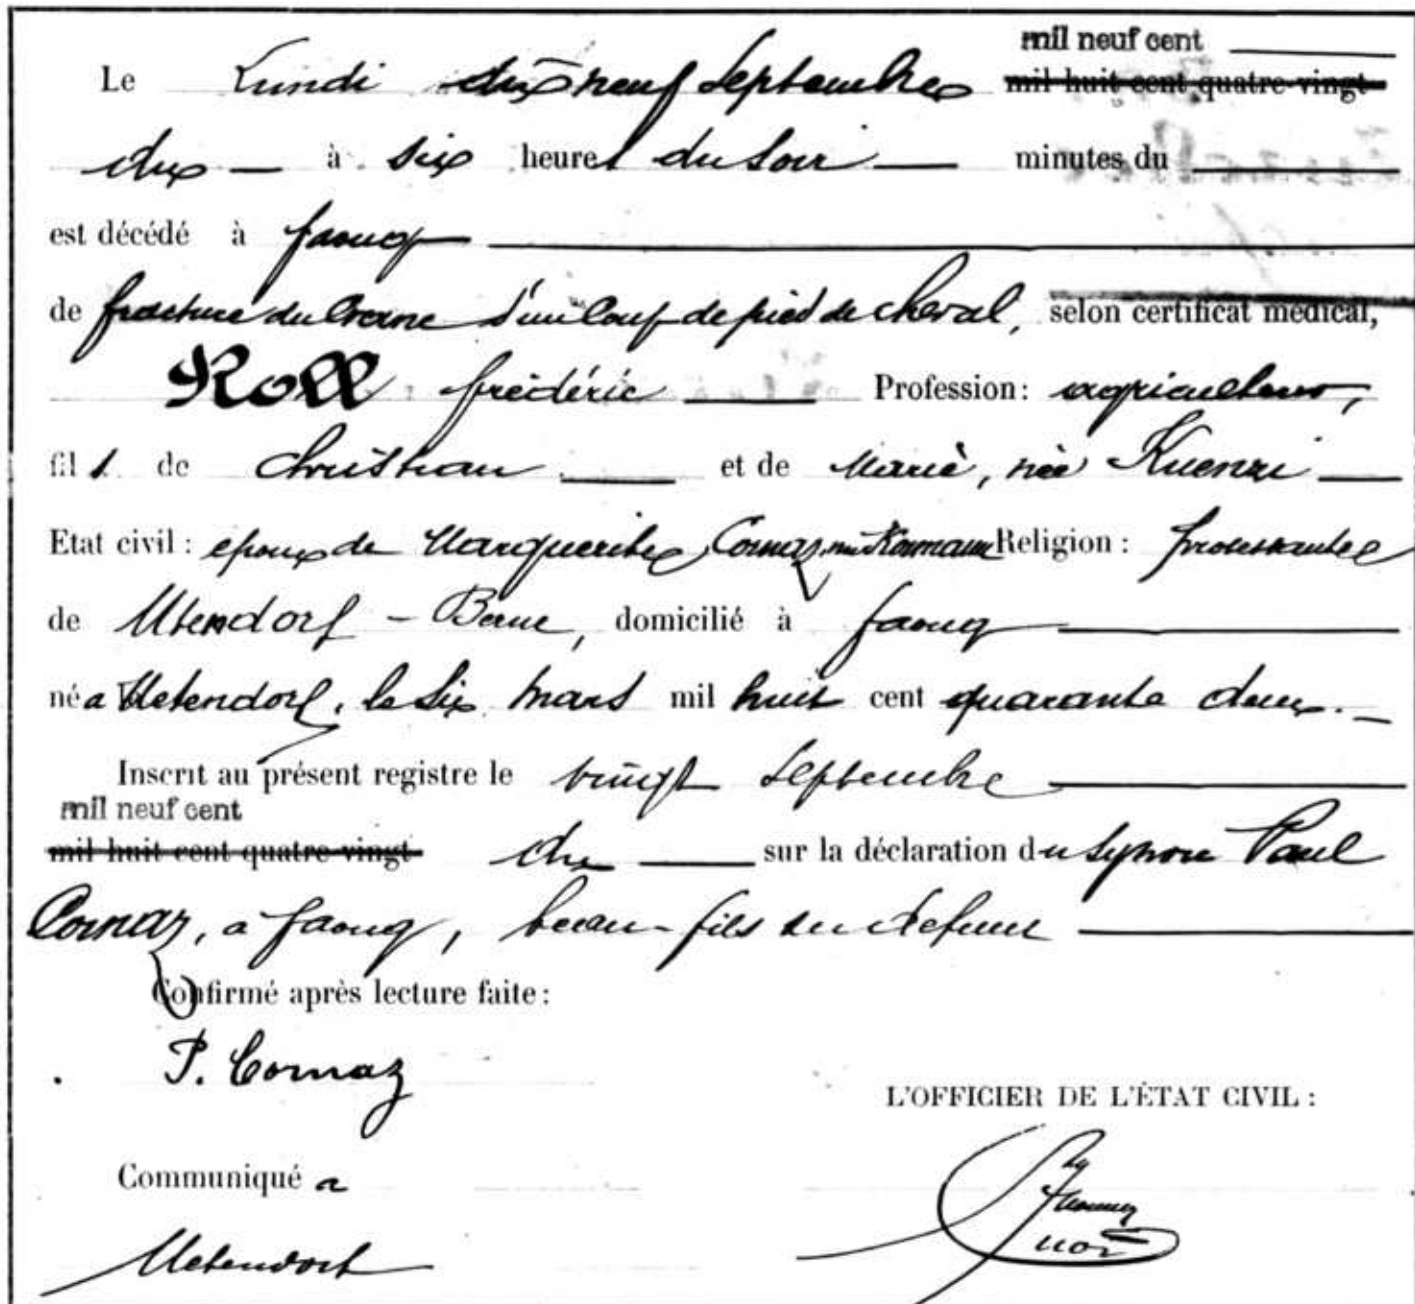 mil neuf cent
Le Lundi dix neuf Septembre mil huit cent quatre-vingt
dix à six heures du soir minutes du
est décédé à faoug
de fracture du Crane d'un Coup de pied de cheval, selon certificat médical,
Roll frédéric Profession: agriculteur,
fils de christian et de Marie, née Kuenzi
Etat civil: epoux de Marguerite Cornaz, née Religion: protestante
de Utendorf - Berne, domicilié à faoug
né a Uetendorf, le six mars mil huit cent quarante deux.
Inscrit au présent registre le vingt Septembre
mil neuf cent
mil huit cent quatre-vingt dix sur la déclaration du Paul
Cornaz, a faoug, beau-fils du defunt
Confirmé après lecture faite:
P. Cornaz
L'OFFICIER DE L'ÉTAT CIVIL:
Communiqué a
Uetendorf